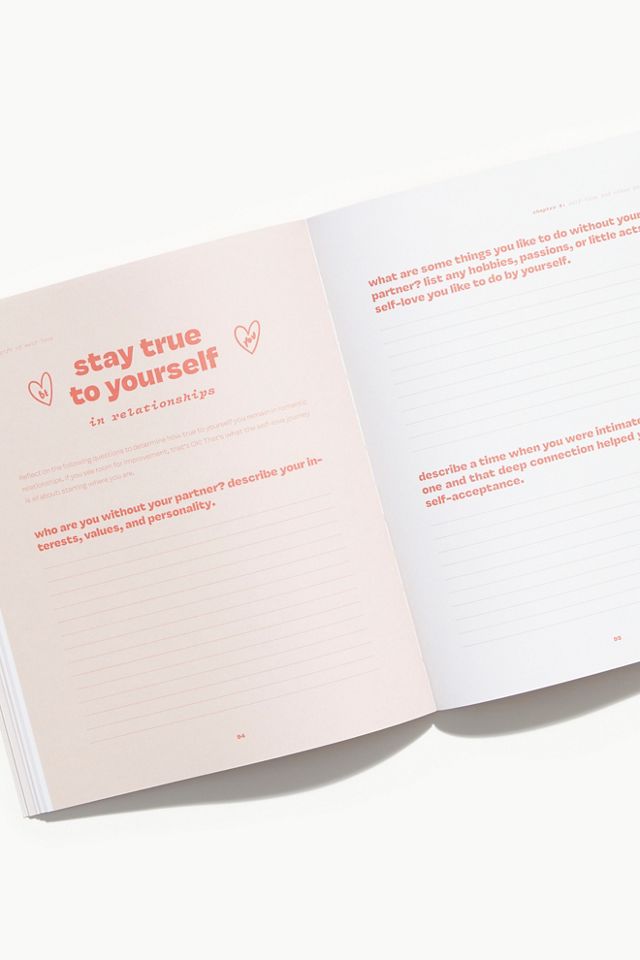 stay true
to yourself
be
you
in relationships
Reflect on the following questions to determine how true to yourself you remain in romantic
relationships. If you see room for improvement, that's OK! That's what the self-love journey
is all about: starting where you are.
who are you without your partner? describe your in-
terests, values, and personality.
94
chapter 4: self-love and
what are some things you like to do without your
partner? list any hobbies, passions, or little acts
self-love you like to do by yourself.
describe a time when you were intimate
one and that deep connection helped y
self-acceptance.
95